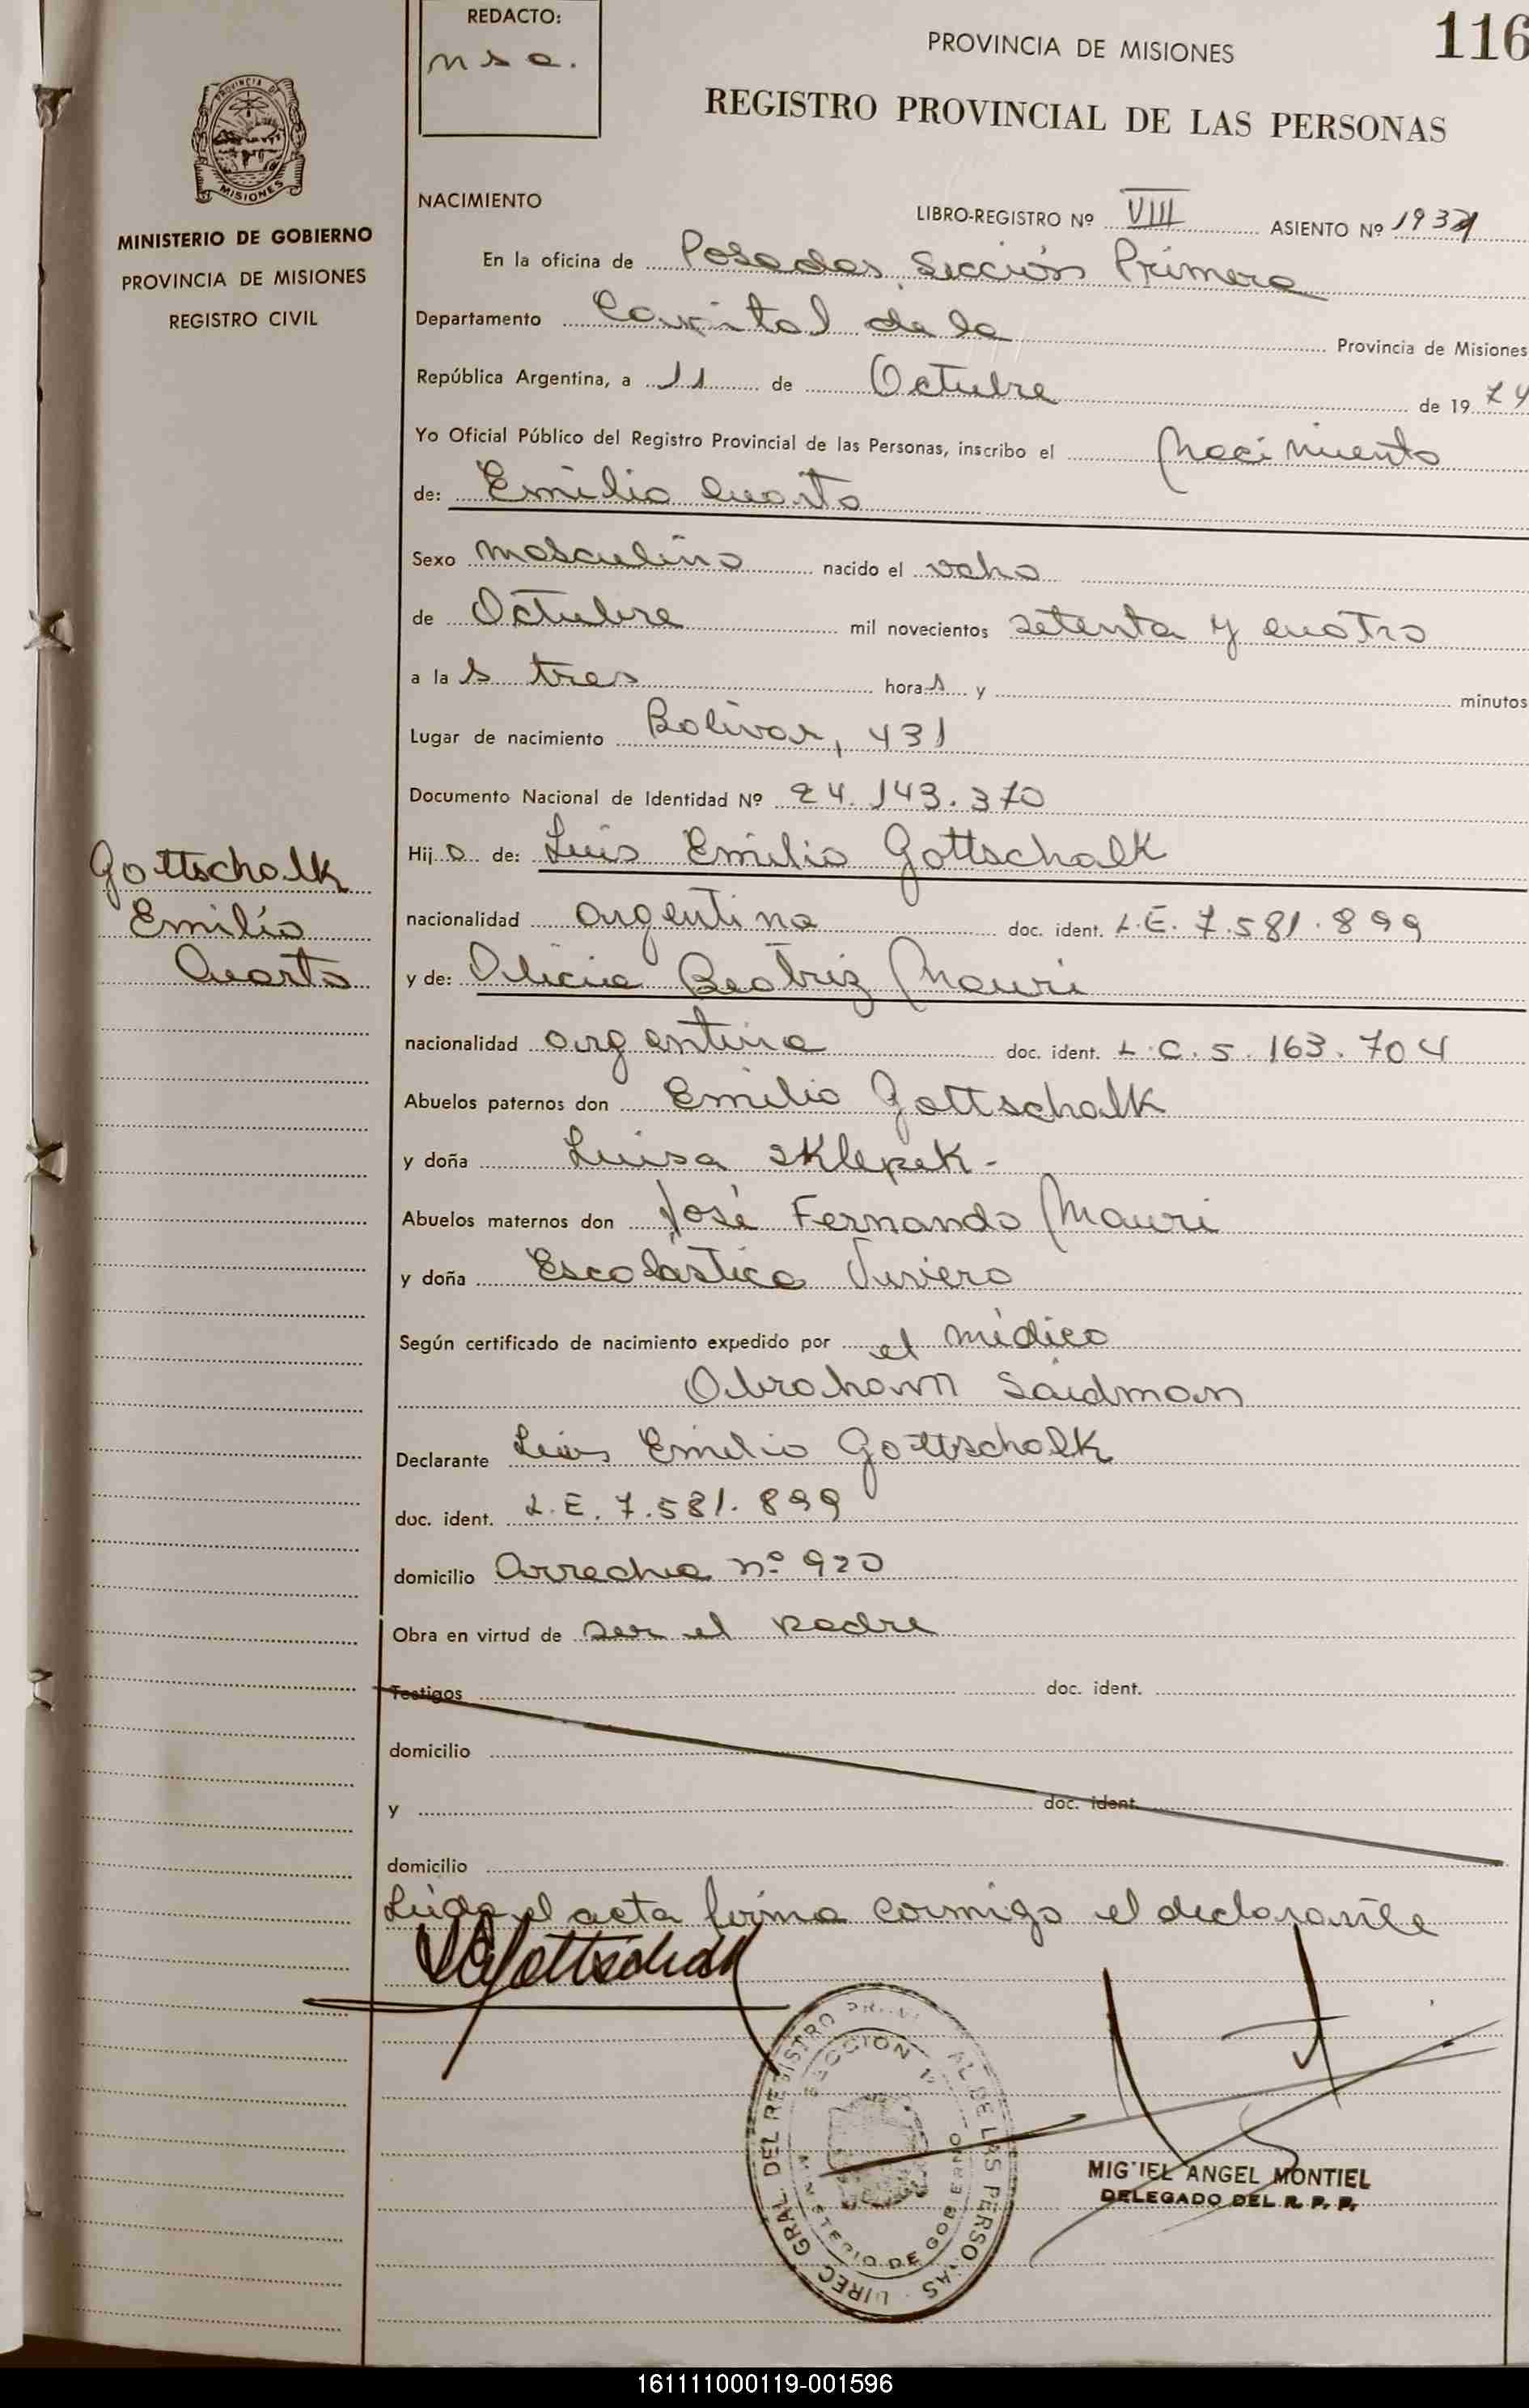 REDACTO:
n s a.
PROVINCIA DE MISIONES
116
REGISTRO PROVINCIAL DE LAS PERSONAS
PROVINCIA DE
MISIONES
MINISTERIO DE GOBIERNO
PROVINCIA DE MISIONES
REGISTRO CIVIL
NACIMIENTO
LIBRO-REGISTRO Nº VIII ASIENTO Nº
En la oficina de Posadas Sección Primera
Departamento Capital de la Provincia de Misiones
República Argentina, a 11 de Octubre de 19 74
Yo Oficial Público del Registro Provincial de las Personas, inscribo el Nacimiento
de: Emilio Cuarto
Sexo masculino nacido el ocho
de Octubre mil novecientos setenta y cuatro
a la s tres hora s y minutos
Lugar de nacimiento Bolívar, 431
Documento Nacional de Identidad Nº 24.143.370
Hij o de: Luis Emilio Gottschalk
nacionalidad argentina doc. ident. L.E. 7.581.899
y de: Alicia Beatriz Mauri
nacionalidad argentina doc. ident. L.C. 5.163.704
Abuelos paternos don Emilio Gottschalk
y doña Luisa Sklepek -
Abuelos maternos don José Fernando Mauri
y doña Escolástica
Según certificado de nacimiento expedido por el médico
Abraham Saidman
Declarante Luis Emilio Gottschalk
doc. ident. L.E. 7.581.899
domicilio Arrechea nº 920
Obra en virtud de ser el padre
Testigos doc. ident.
domicilio
y doc. ident.
domicilio
Leída el acta firma conmigo el declarante
Gottschalk
Emilio
Cuarto
LEGottschalk
DIREC. GRAL. DEL REGISTRO PROVINCIAL DE LAS PERSONAS
SECCION 1ª
MINISTERIO DE GOBIERNO
MIGUEL ANGEL MONTIEL
DELEGADO DEL R. P. P.
161111000119-001596